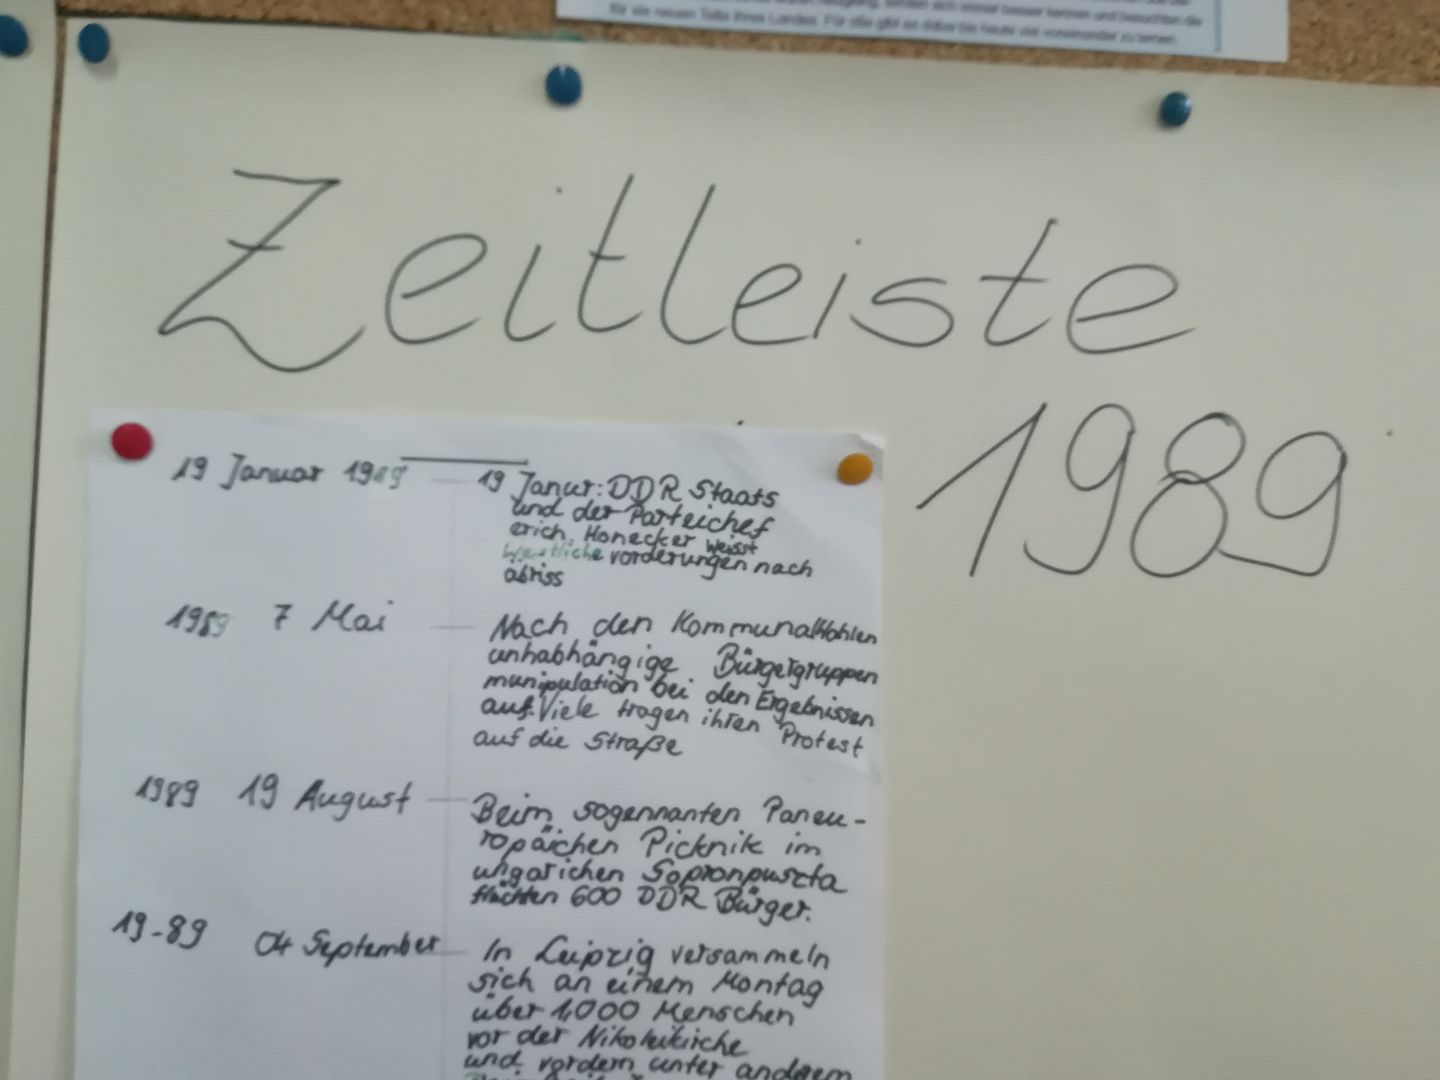 für sie neuen Teils ihres Landes. Für alle gibt es dabei bis heute viel voneinander zu lernen.
Zeitleiste
1989
19 Januar 1989
19 Janur: DDR Staats
und der Parteichef
erich Honecker weisst
westliche vorderungen nach
abriss
1989 7 Mai
Nach den Kommunalwahlen
unhabhängige Bürgergruppen
munipulation bei den Ergebnissen
auf. Viele tragen ihren Protest
auf die Straße
1989 19 August
Beim sogennanten Paneu-
ropäichen Picknik im
ungarichen Sopronpuszta
flüchten 600 DDR Bürger.
19-89 04 September
In Leipzig versammeln
sich an einem Montag
über 1,000 Menschen
vor der Nikoleikirche
und vordern unter anderem